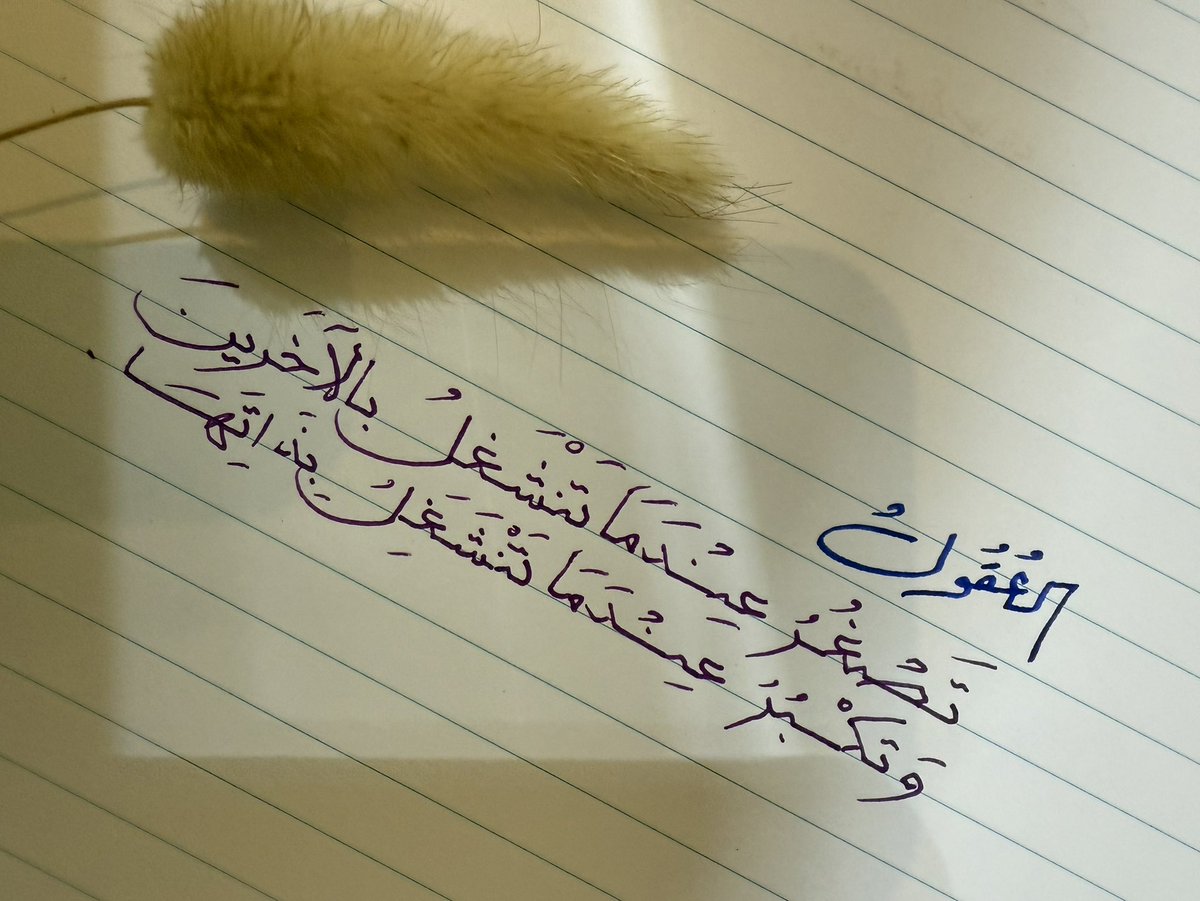 العُقُولُ
تَصْغُرُ عِنْدَمَا تَنْشَغِلُ بِالْآخَرِينَ
وَتَكْبُرُ عِنْدَمَا تَنْشَغِلُ بِذَاتِهَا.